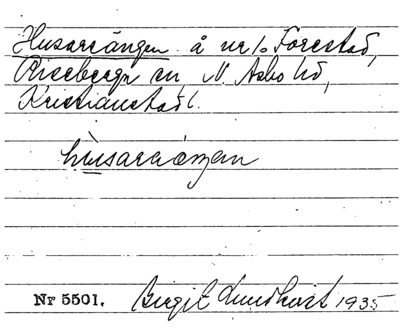 Husarängen å nr 10 Forestad,
Riseberga sn N. Asbo hd,
Kristianstad l.
hùsaraŋan
Nr 5501. Birgit Lundkvist 1935